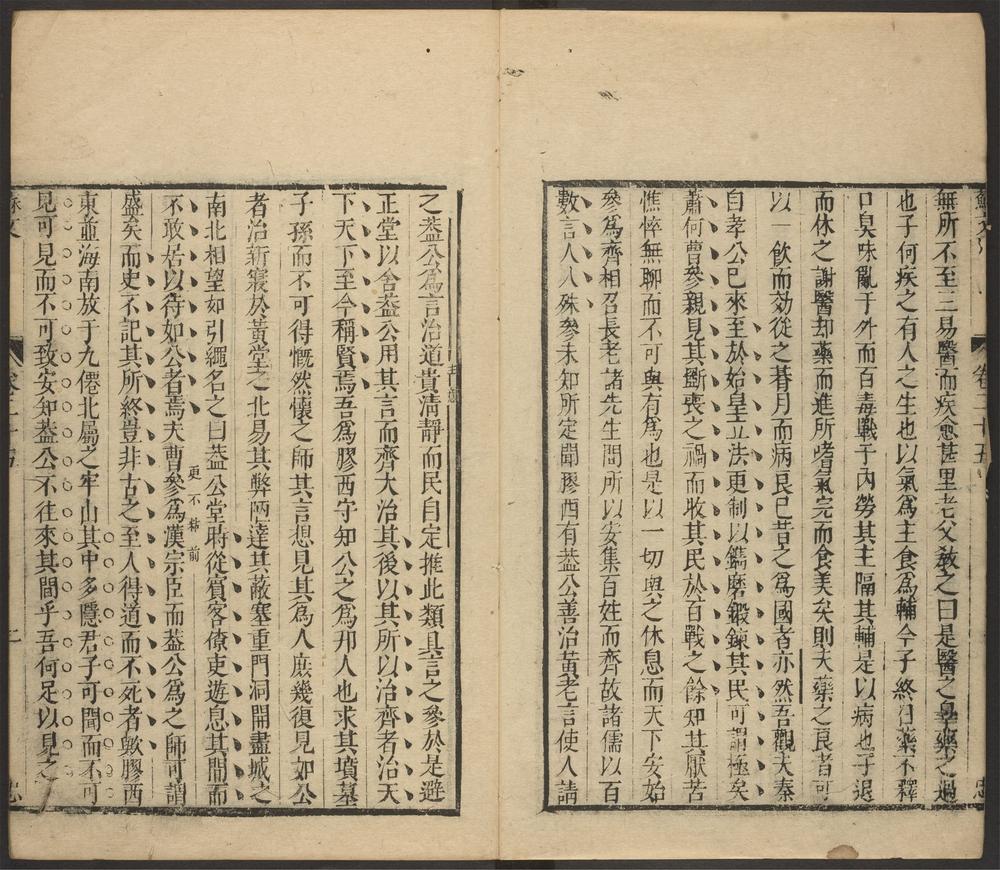 無所不至三易醫而疾愈甚里老父敎之曰是醫之辠藥之過
也子何疾之有人之生也以氣爲主食爲輔今子終日藥不釋
口臭味亂于外而百毒戰于內勞其主隔其輔是以病也子退
而休之謝醫却藥而進所嗜氣完而食美矣則夫藥之良者可
以一飲而効從之朞月而病良已昔之爲國者亦然吾觀夫秦
自孝公已來至於始皇立法更制以鐫磨鍛鍊其民可謂極矣
蕭何曹參親見其斵喪之禍而收其民於百戰之餘知其厭苦
憔悴無聊而不可與有爲也是以一切與之休息而天下安始
參爲齊相召長老諸先生問所以安集百姓而齊故諸儒以百
數言人人殊參未知所定聞膠西有葢公善治黃老言使人請
之葢公爲言治道貴淸靜而民自定推此類具言之參於是避
正堂以舍葢公用其言而齊大治其後以其所以治齊者治天
下天下至今稱賢焉吾爲膠西守知公之爲邦人也求其墳墓
子孫而不可得慨然懷之師其言想見其爲人庶幾復見如公
者治新寢於黃堂之北易其弊陋達其蔽塞重門洞開盡城之
南北相望如引繩名之曰葢公堂時從賓客僚吏遊息其間而
不敢居以待如公者焉夫曹參爲漢宗臣而葢公爲之師可謂
更不粘前
盛矣而史不記其所終豈非古之至人得道而不死者歟膠西
東並海南放于九僊北屬之牢山其中多隱君子可聞而不可
見可見而不可致安知葢公不往來其間乎吾何足以見之
卷二十五
二